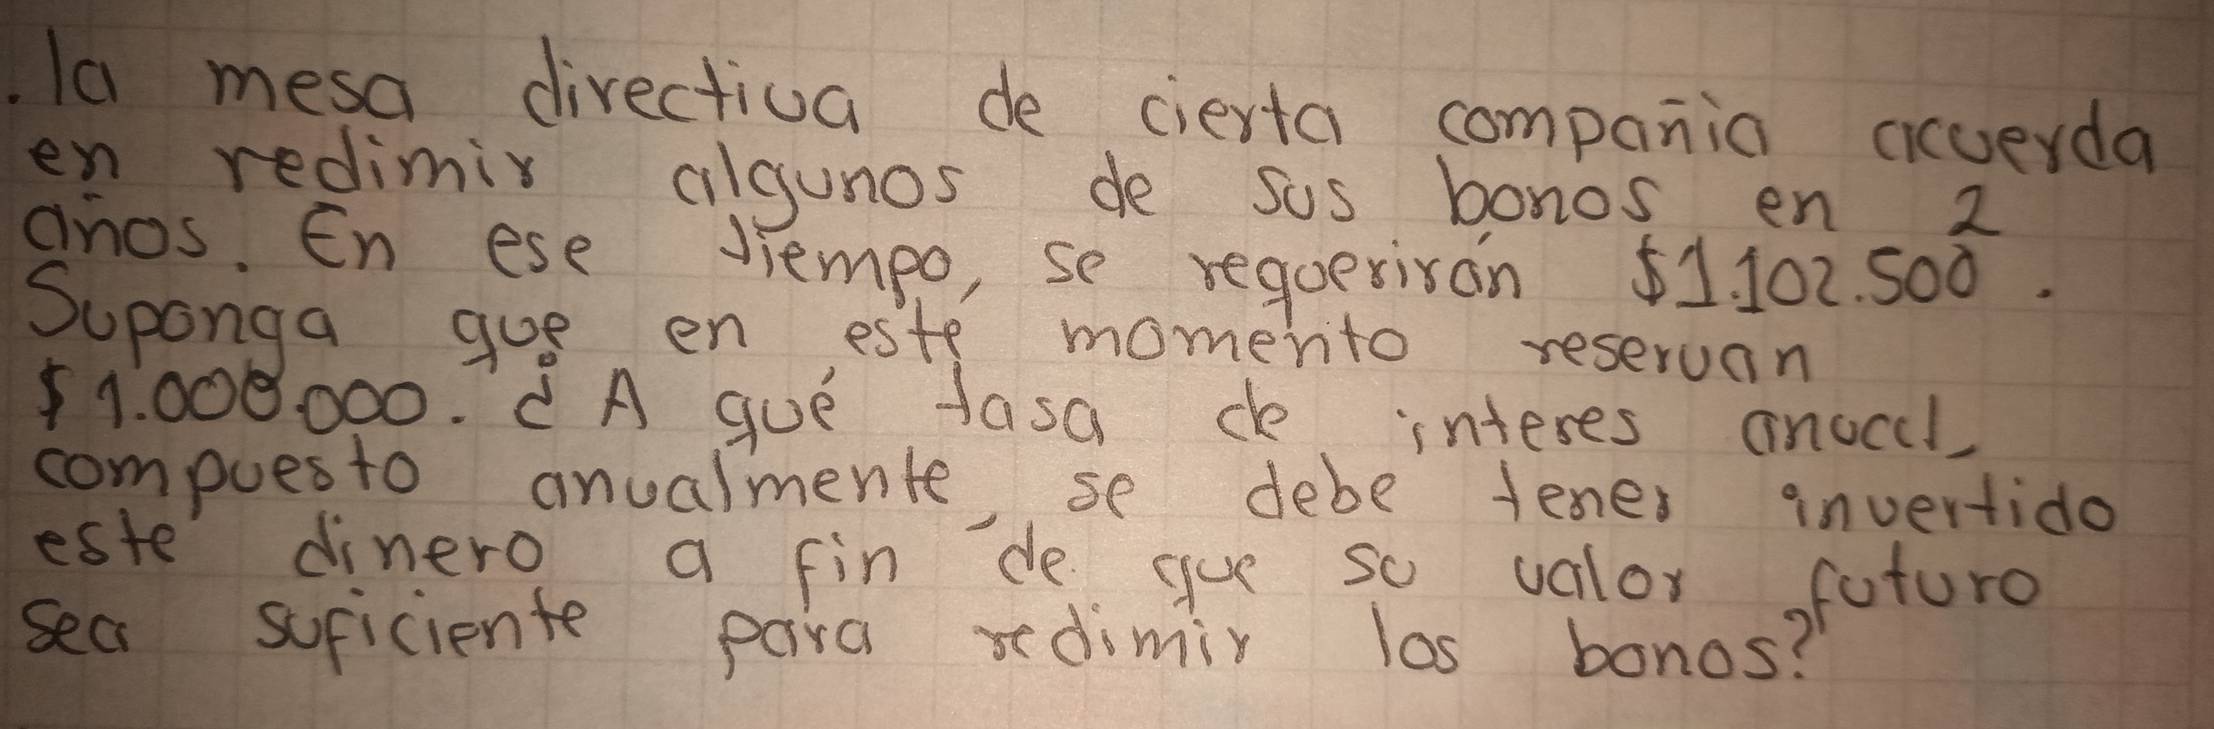 . la mesa directiva de cierta compañia acuerda
en redimir algunos de sus bonos en 2
años. En ese tiempo, se requerirán $1.102.500.
Suponga que en este momento reservan
$1.000.000. ¿A qué tasa de interes anual,
compuesto anualmente, se debe tener invertido
este dinero a fin de que su valor futuro
sea suficiente para redimir los bonos?